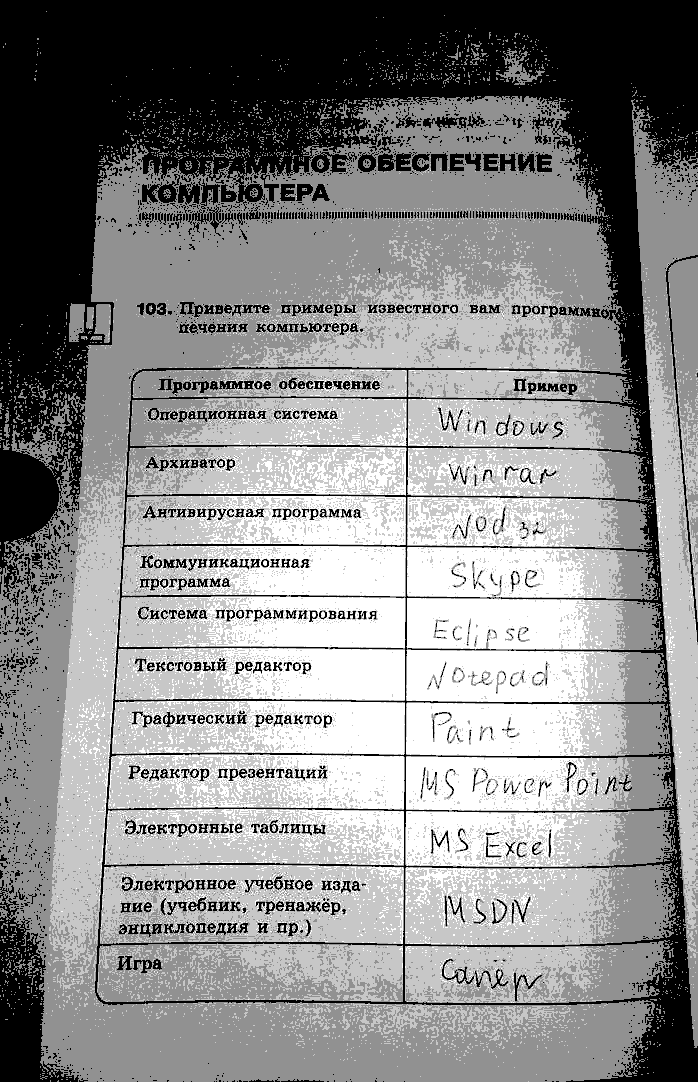 ПРОГРАММНОЕ ОБЕСПЕЧЕНИЕ
КОМПЬЮТЕРА
103. Приведите примеры известного вам программног
печения компьютера.
Программное обеспечение Пример
Операционная система Windows
Архиватор Winrar
Антивирусная программа Nod 32
Коммуникационная
программа Skype
Система программирования Eclipse
Текстовый редактор Notepad
Графический редактор Paint
Редактор презентаций MS Power Point
Электронные таблицы MS Excel
Электронное учебное изда-
ние (учебник, тренажёр, MSDN
энциклопедия и пр.)
Игра Сапёр